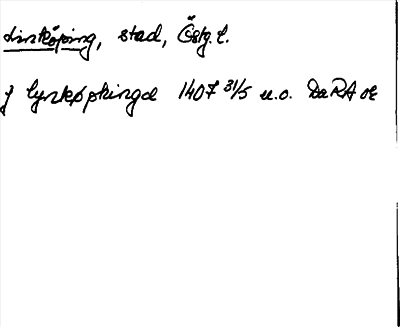 Linköping, stad, Östg. l.
j lynkøphingæ 1407 31/5 u.o. DaRA or